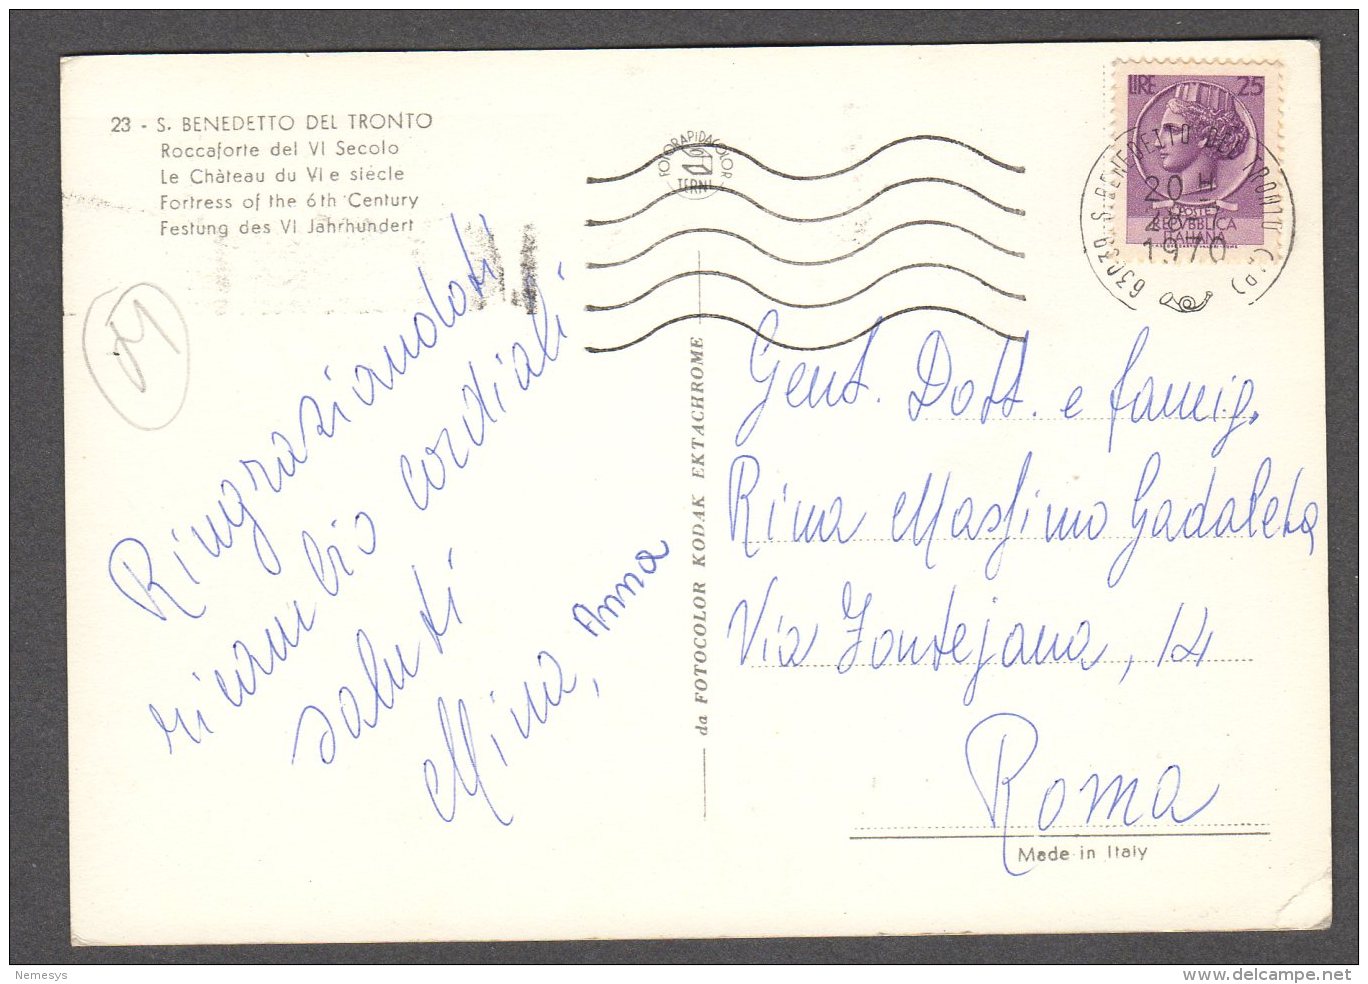 23 - S. BENEDETTO DEL TRONTO
Roccaforte del VI Secolo
Le Château du VI e siècle
Fortress of the 6th Century
Festung des VI Jahrhundert
FOTORAPIDACOLOR
TERNI
LIRE 25
POSTE
REPVBBLICA
ITALIANA
63039 S. BENEDETTO DEL TRONTO (AP)
20 H
1970
M
Ringraziandoti
ricambio cordiali
saluti
Mima, Anna
da FOTOCOLOR KODAK EKTACHROME
Gent. Dott. e famig.
Rina Massimo Gadaleta
Via Fontejana, 14
Roma
Made in Italy
Nemesys
www.delcampe.net